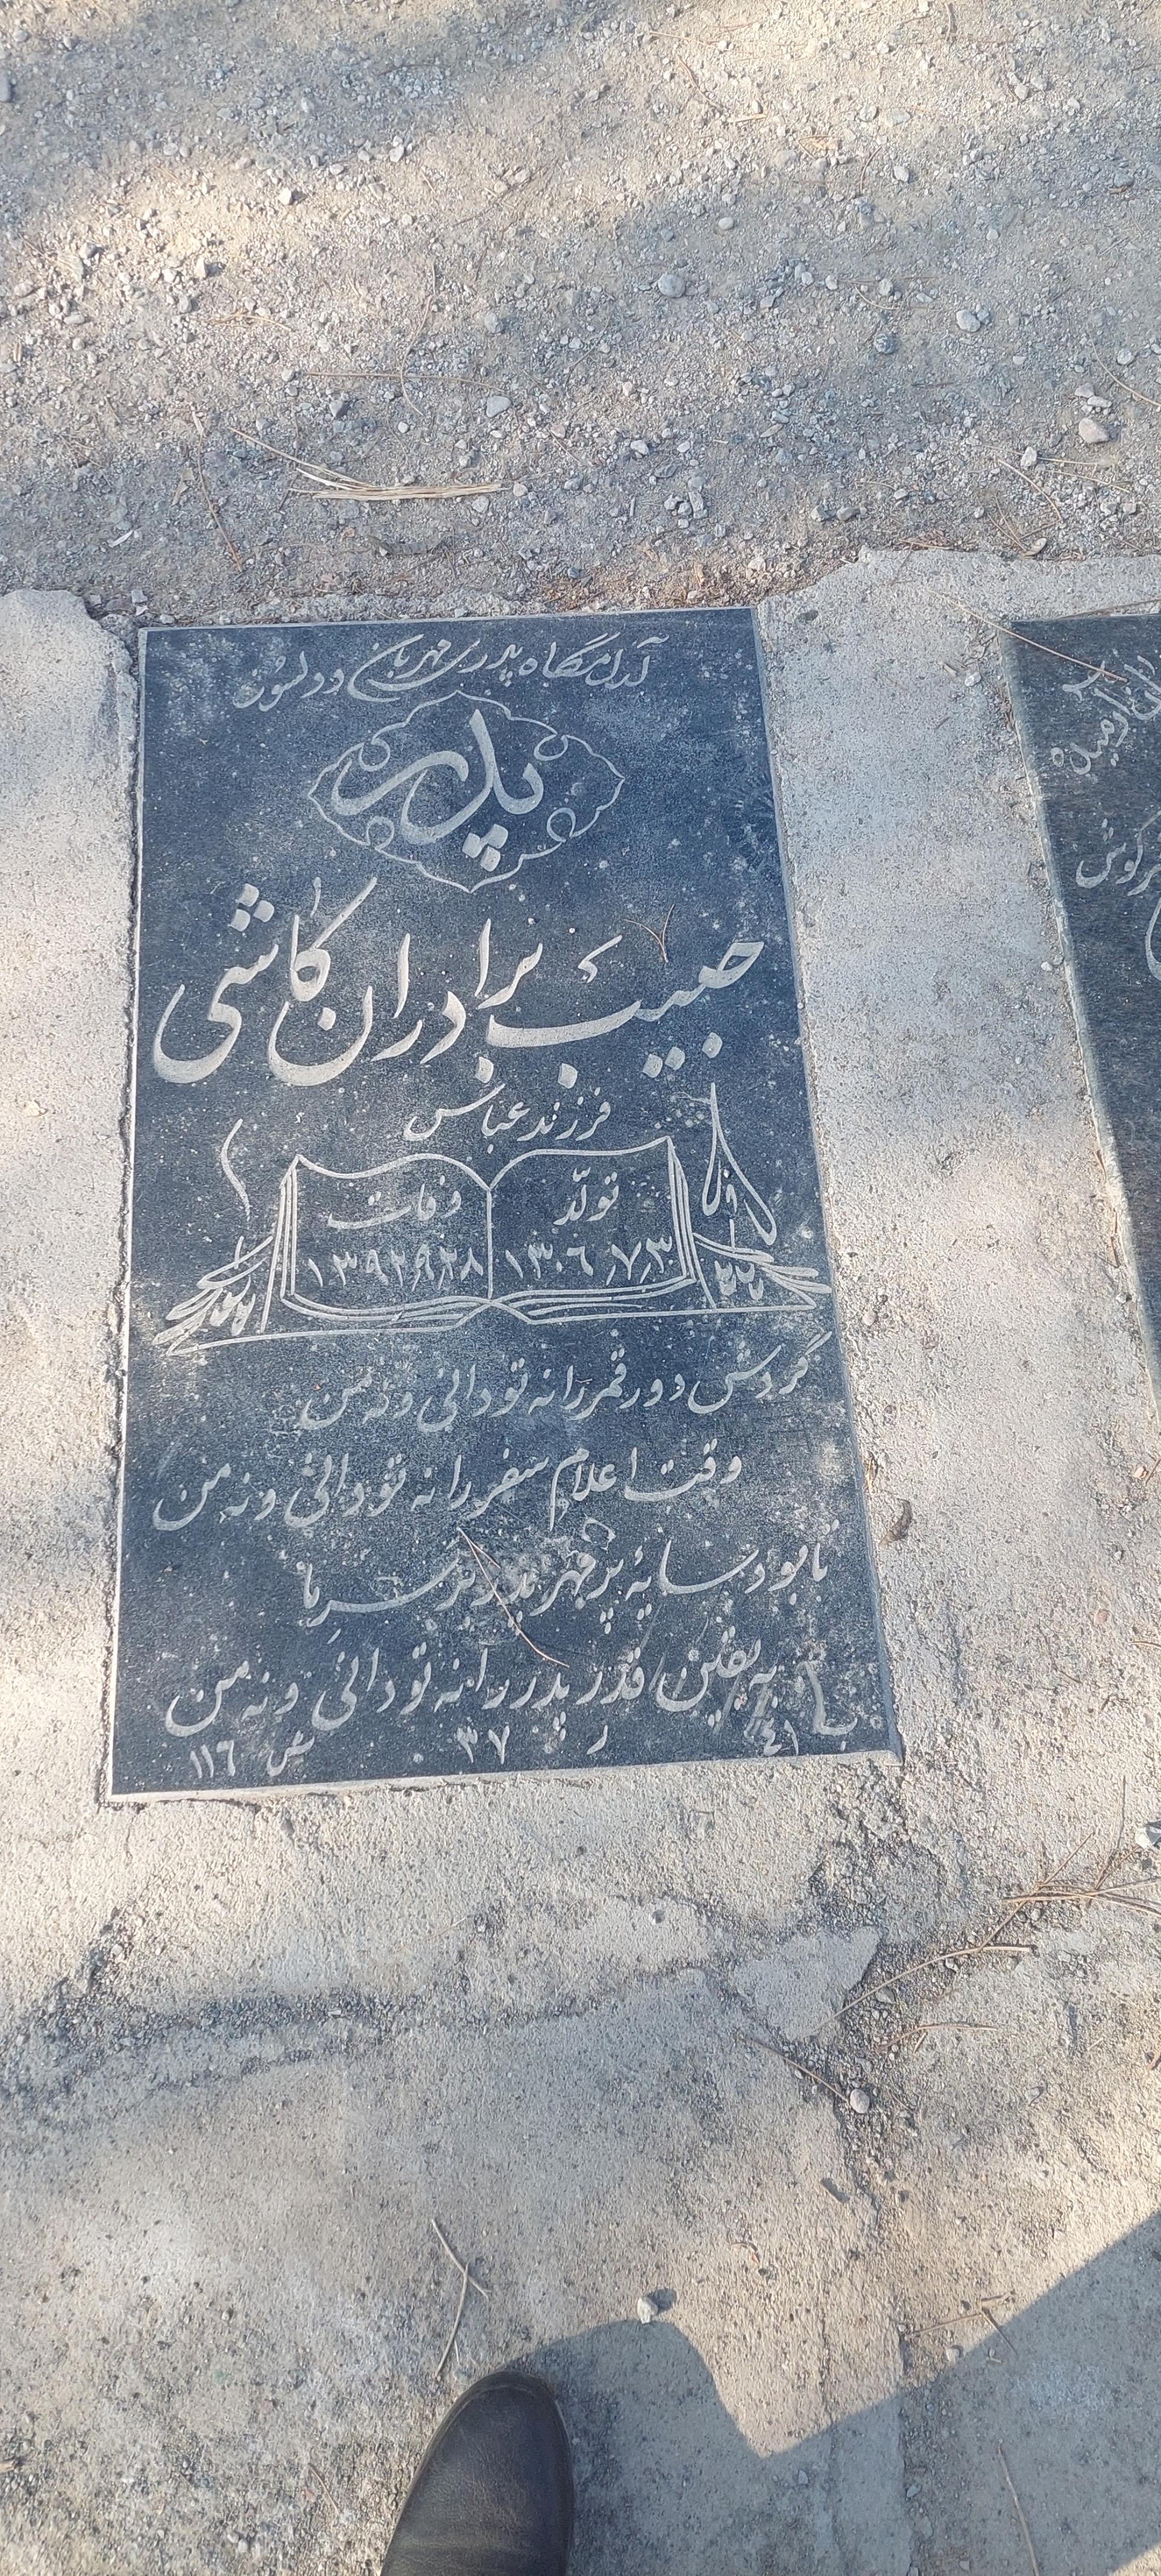 آرامگاه پدری مهربان و دلسوز
پدر
حبیب برادران کاشی
فرزند عباس
تولّد
۱۳۰۶٫۷٫۳۰
وفات
۱۳۹۲٫۹٫۲۸
گردش دور قمر را نه تو دانی و نه من
وقت اعلام سفر را نه تو دانی و نه من
تا بود سایهٔ پر مهر پدر بر سر ما
به یقین قدر پدر را نه تو دانی و نه من
ب ۴۱ ر ۳۷ ش ۱۱۶